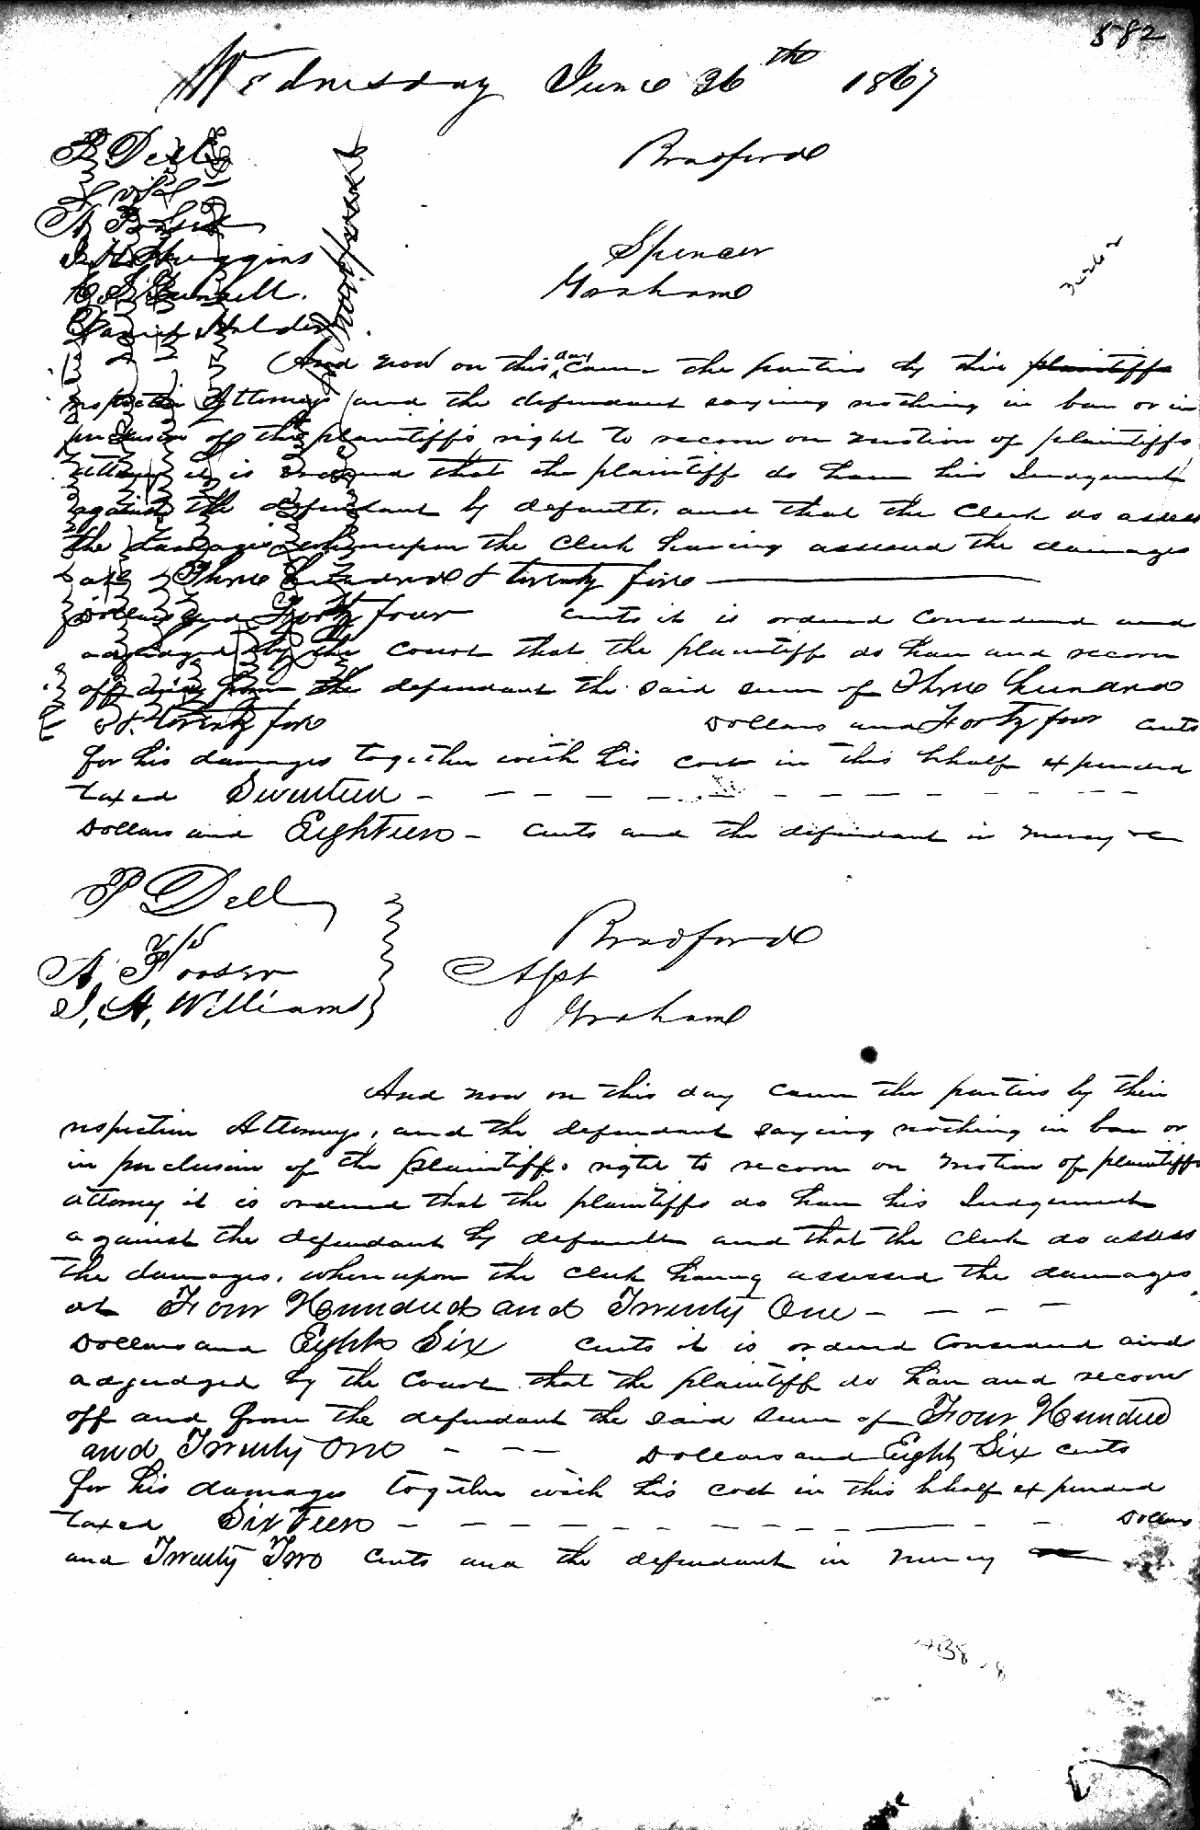 582
Wednesday June 26th 1867
P Dell
Bradford
vs
A
J H Huggins
Spencer
Graham
Daniel Halder
And now on this day came the parties by their plaintiffs
respective Attorneys and the defendant saying nothing in bar or in
preclusion of the plaintiffs right to recover on motion of plaintiffs
attorney it is ordered that the plaintiff do have his Judgment
against the defendant by default, and that the Clerk do assess
the damages, whereupon the Clerk having assessed the damages
at Three hundred & twenty five
Dollars and Forty four cents it is ordered Considered and
adjudged by the Court that the plaintiff do have and recover
off and from the defendant the said sum of Three hundred
& twenty five Dollars and Forty four cents
for his damages together with his cost in this behalf expended
taxed Seventeen - - - - - - - - - - - -
Dollars and Eighteen - Cents and the defendant in mercy &c
P Dell
Bradford
v/s
A. Fooser
Agst
J, A, Williams
Graham
And now on this day came the parties by their
respective Attorneys, and the defendant saying nothing in bar or
in preclusion of the plaintiffs right to recover on motion of plaintiffs
attorney it is ordered that the plaintiffs do have his Judgment
against the defendant by default and that the Clerk do assess
the damages, whereupon the Clerk having assessed the damages
at Four Hundred and Twenty One - - - -
Dollars and Eighty Six cents it is ordered Considered and
adjudged by the Court that the plaintiff do have and recover
off and from the defendant the said sum of Four Hundred
and Twenty One - - - Dollars and Eighty Six cents
for his damages together with his cost in this behalf expended
taxed Sixteen - - - - - - - - - - - Dollars
and Twenty Two Cents and the defendant in mercy